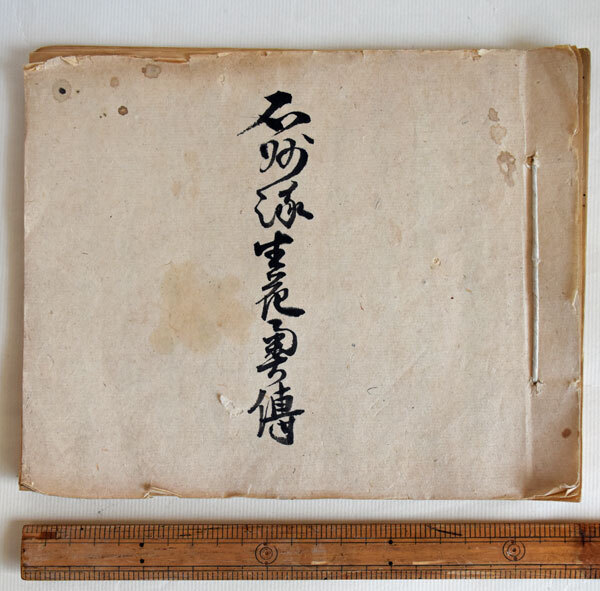 石州流生花奥傳